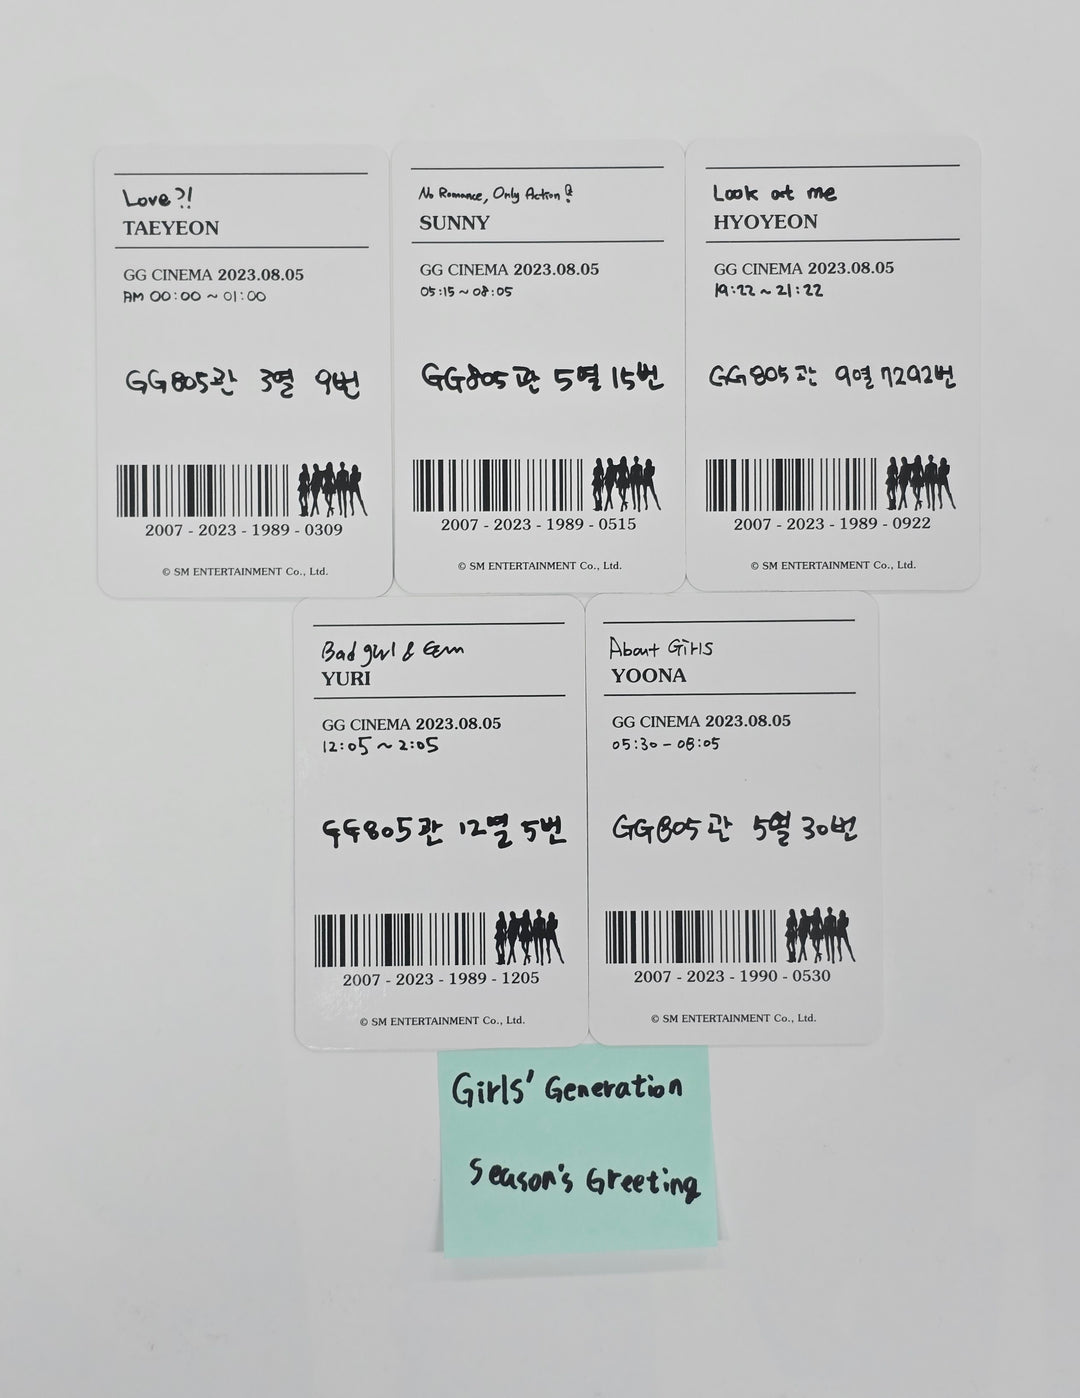 Love?!
TAEYEON
GG CINEMA 2023.08.05
AM 00:00 ~ 01:00
GG805관 3열 9번
2007 - 2023 - 1989 - 0309
© SM ENTERTAINMENT Co., Ltd.
No Romance, Only Action!
SUNNY
GG CINEMA 2023.08.05
05:15 ~ 08:05
GG805관 5열 15번
2007 - 2023 - 1989 - 0515
© SM ENTERTAINMENT Co., Ltd.
Look at me
HYOYEON
GG CINEMA 2023.08.05
19:22 ~ 21:22
GG805관 9열 7292번
2007 - 2023 - 1989 - 0922
© SM ENTERTAINMENT Co., Ltd.
Bad girl &
YURI
GG CINEMA 2023.08.05
12:05 ~ 2:05
GG805관 12열 5번
2007 - 2023 - 1989 - 1205
© SM ENTERTAINMENT Co., Ltd.
About Girls
YOONA
GG CINEMA 2023.08.05
05:30 - 08:05
GG805관 5열 30번
2007 - 2023 - 1990 - 0530
© SM ENTERTAINMENT Co., Ltd.
Girls' Generation
Season's Greeting